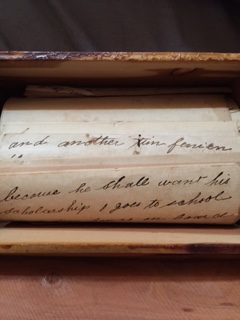 and another tin fenien
because he shall want his
scholarship & goes to school